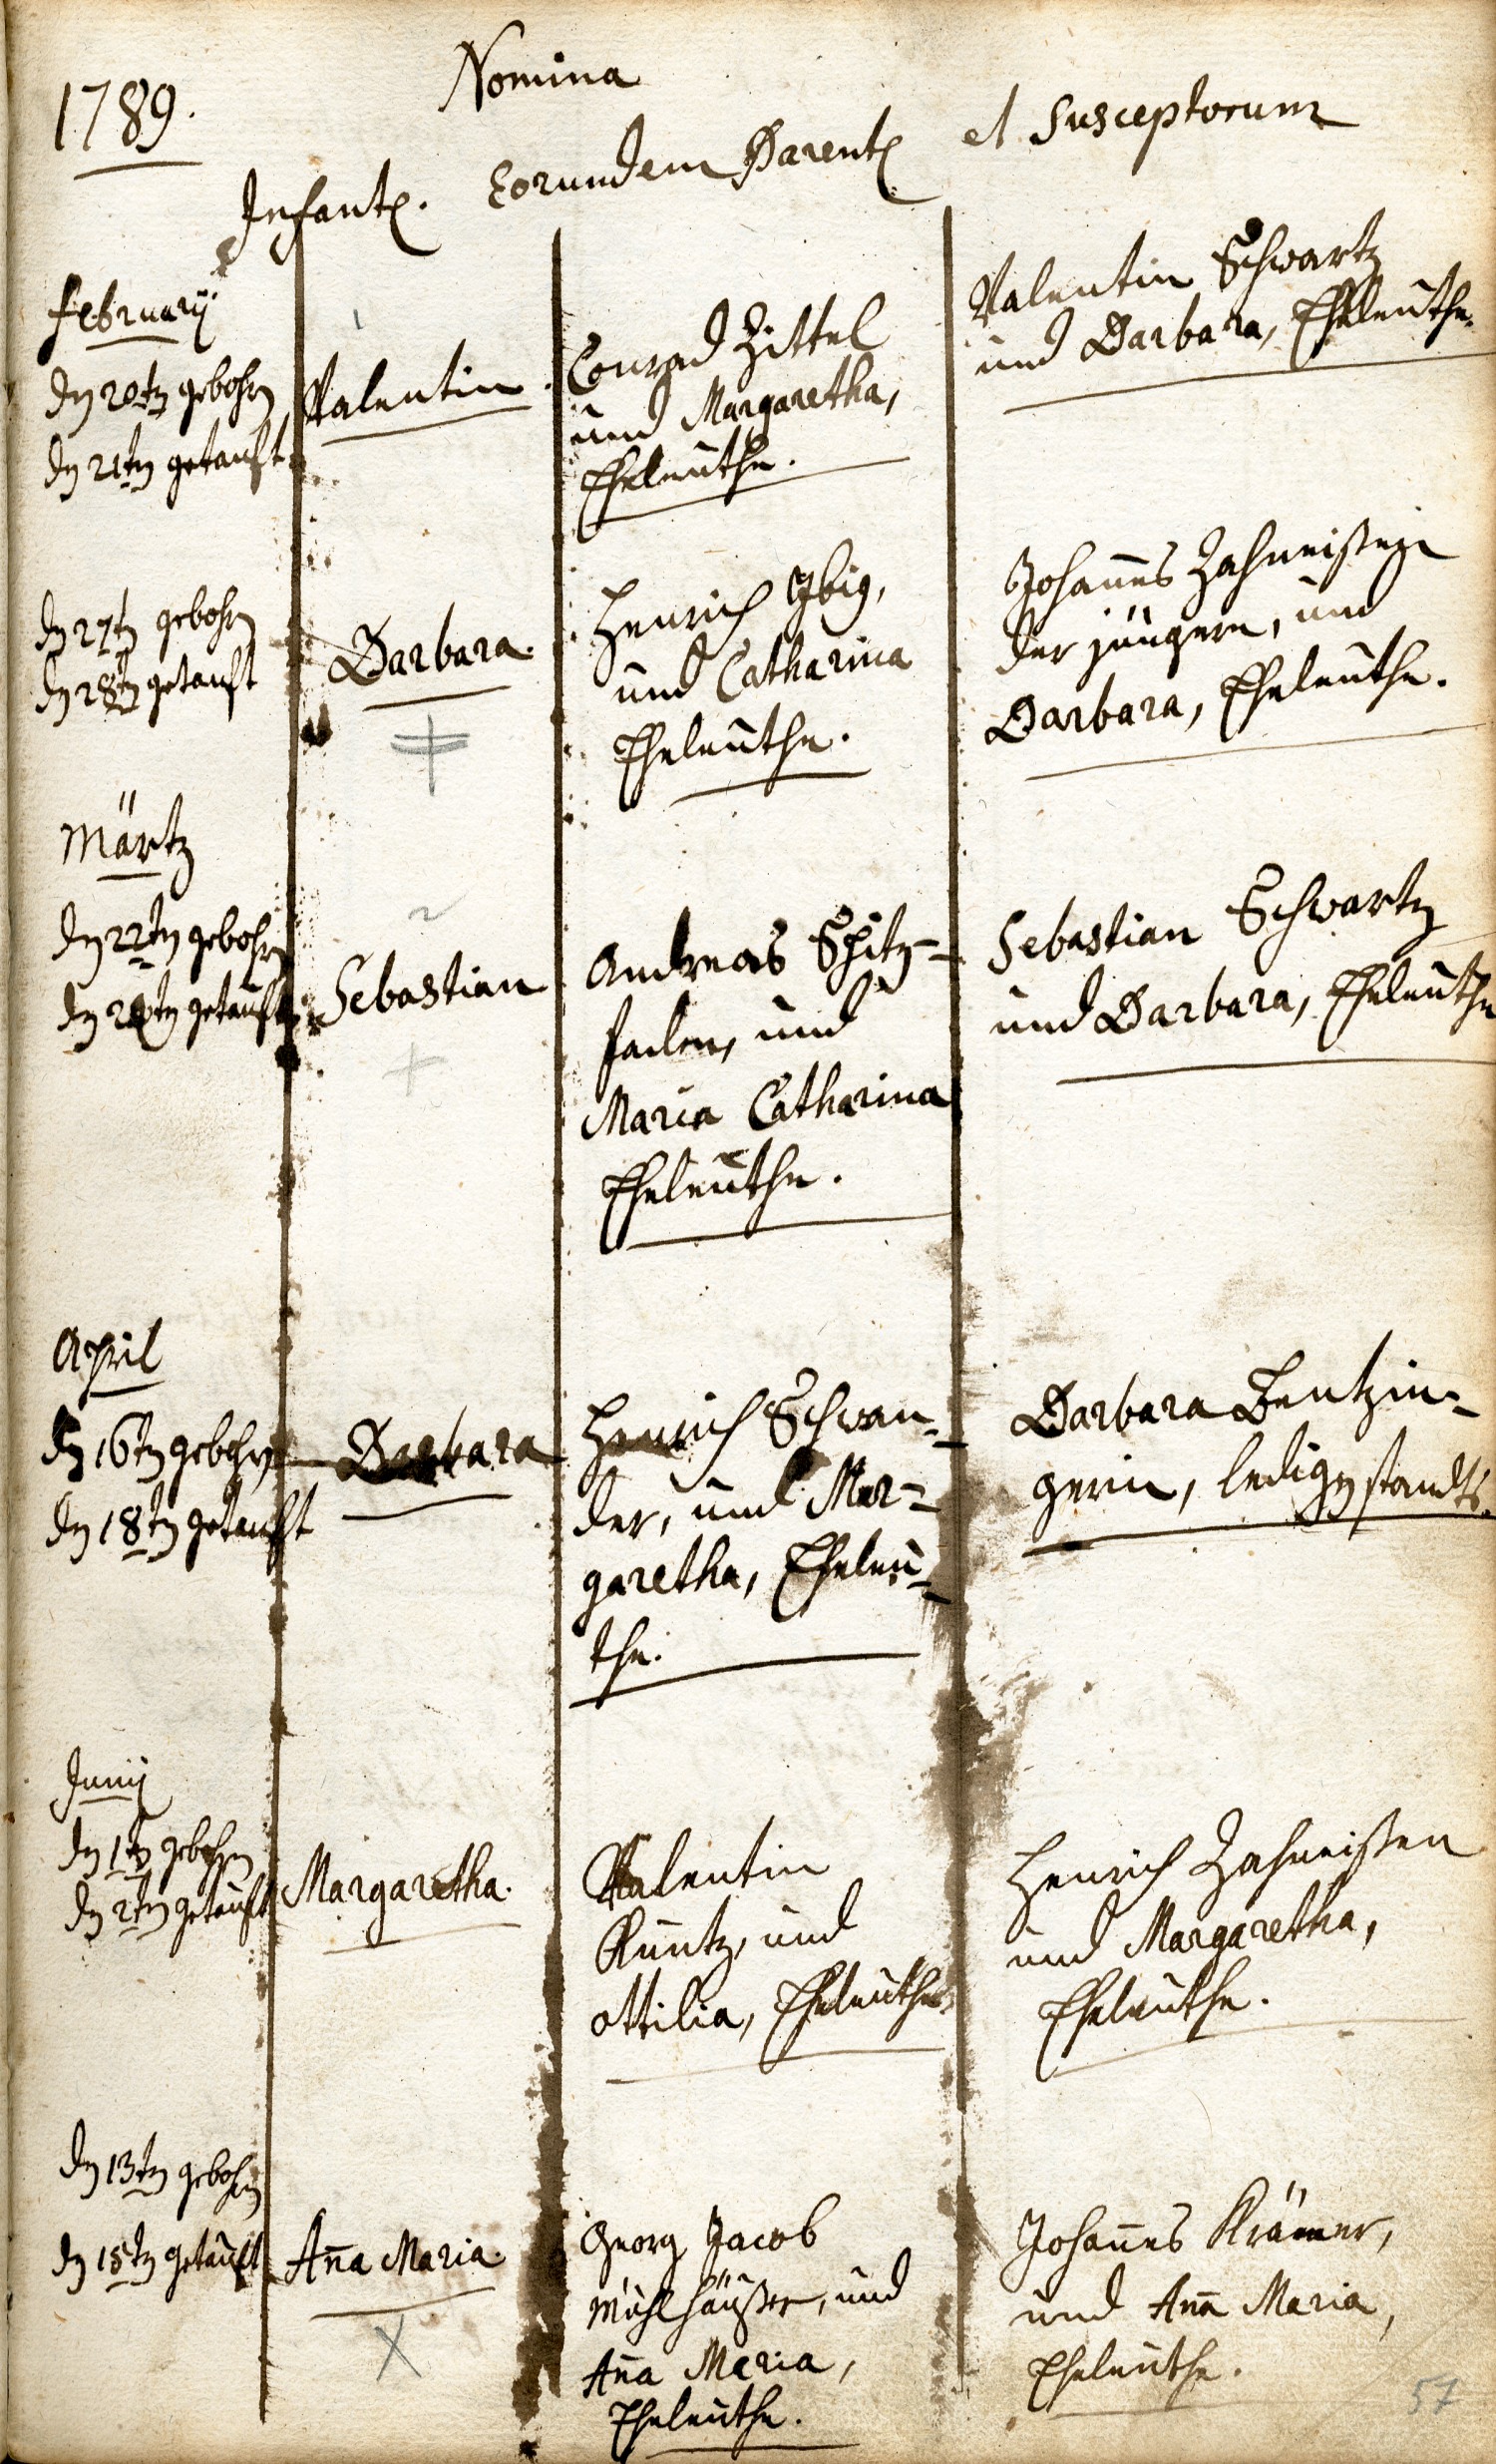 1789.
Nomina
Infant. Eorundem Parent et Susceptorum
February
den 20ten gebohren
den 21ten getauft
Valentin.
Conrad Zittel
und Margaretha,
Eheleuthe.
Valentin Schwartz
und Barbara, Eheleuthe.
den 27ten gebohren
den 28ten getauft
Barbara.
Henrich Ibig,
und Catharina
Eheleuthe.
Johannes Zahneißen
der jüngere, und
Barbara, Eheleuthe.
Märtz
den 22ten gebohren
den getauft
Sebastian
Andreas Spitz-
faden, und
Maria Catharina
Eheleuthe.
Sebastian Schwartz
und Barbara, Eheleuthe
April
den 16ten gebohren
den 18ten getauft
Barbara
Henrich Schwan-
der, und Mar-
garetha, Eheleu-
the.
Barbara Bentzin-
gerin, ledigen standts.
Junij
den 1ten gebohren
den 2ten getauft
Margaretha.
Valentin
Kuntz, und
Ottilia, Eheleuthe.
Henrich Zahneißen
und Margaretha,
Eheleuthe.
den 13ten gebohren
den 15ten getauft
Anna Maria.
Georg Jacob
Mühlhäußer, und
Anna Maria,
Eheleuthe.
Johannes Krämer,
und Anna Maria,
Eheleuthe.
57